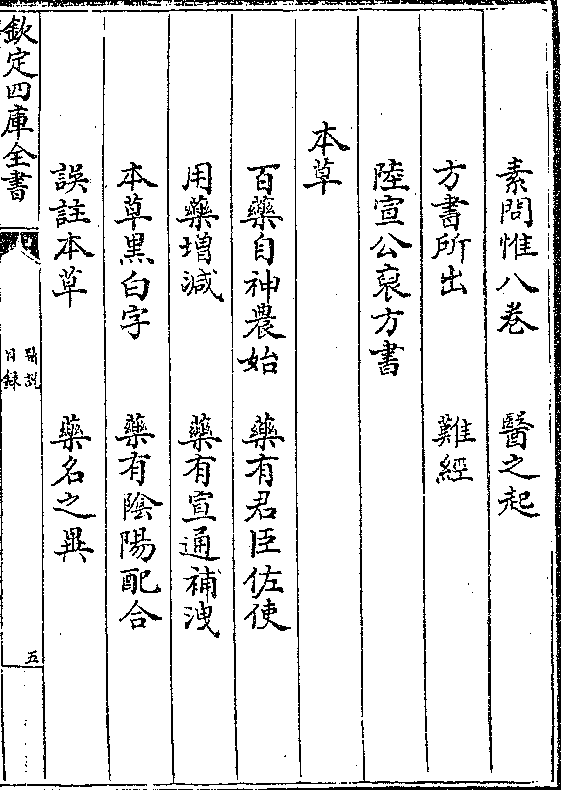 素問惟八卷　　醫之起
方書所出　　　難經
陸宣公裒方書
本草
百藥自神農始　藥有君臣佐使
用藥增減　　　藥有宣通補洩
本草黑白字　　藥有陰陽配合
誤註本草　　　藥名之異
欽定四庫全書
醫説
目錄
五